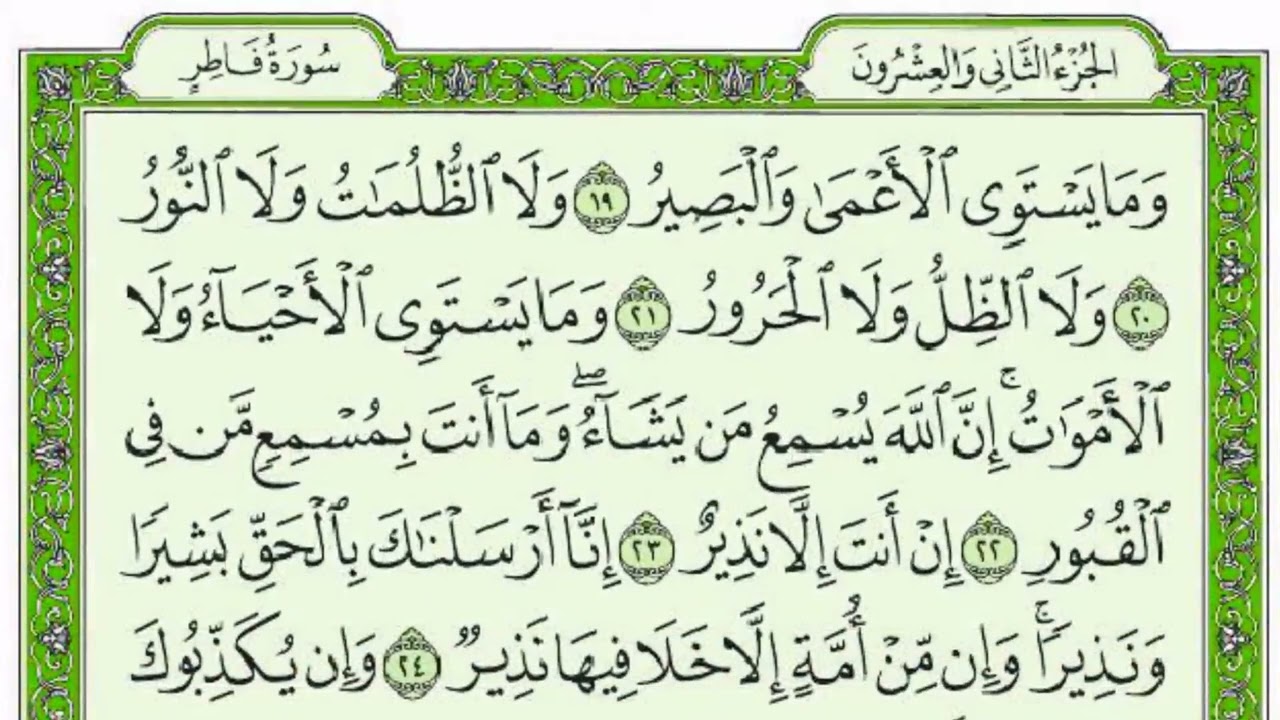 الجُزْءُ الثَّانِي وَالعِشْرُونَ
سُورَةُ فَاطِرٍ
وَمَا يَسْتَوِى ٱلْأَعْمَىٰ وَٱلْبَصِيرُ ١٩ وَلَا ٱلظُّلُمَٰتُ وَلَا ٱلنُّورُ
٢٠ وَلَا ٱلظِّلُّ وَلَا ٱلْحَرُورُ ٢١ وَمَا يَسْتَوِى ٱلْأَحْيَآءُ وَلَا
ٱلْأَمْوَٰتُ ۚ إِنَّ ٱللَّهَ يُسْمِعُ مَن يَشَآءُ ۖ وَمَآ أَنتَ بِمُسْمِعٍ مَّن فِى
ٱلْقُبُورِ ٢٢ إِنْ أَنتَ إِلَّا نَذِيرٌ ٢٣ إِنَّآ أَرْسَلْنَٰكَ بِٱلْحَقِّ بَشِيرًا
وَنَذِيرًا ۚ وَإِن مِّنْ أُمَّةٍ إِلَّا خَلَا فِيهَا نَذِيرٌ ٢٤ وَإِن يُكَذِّبُوكَ